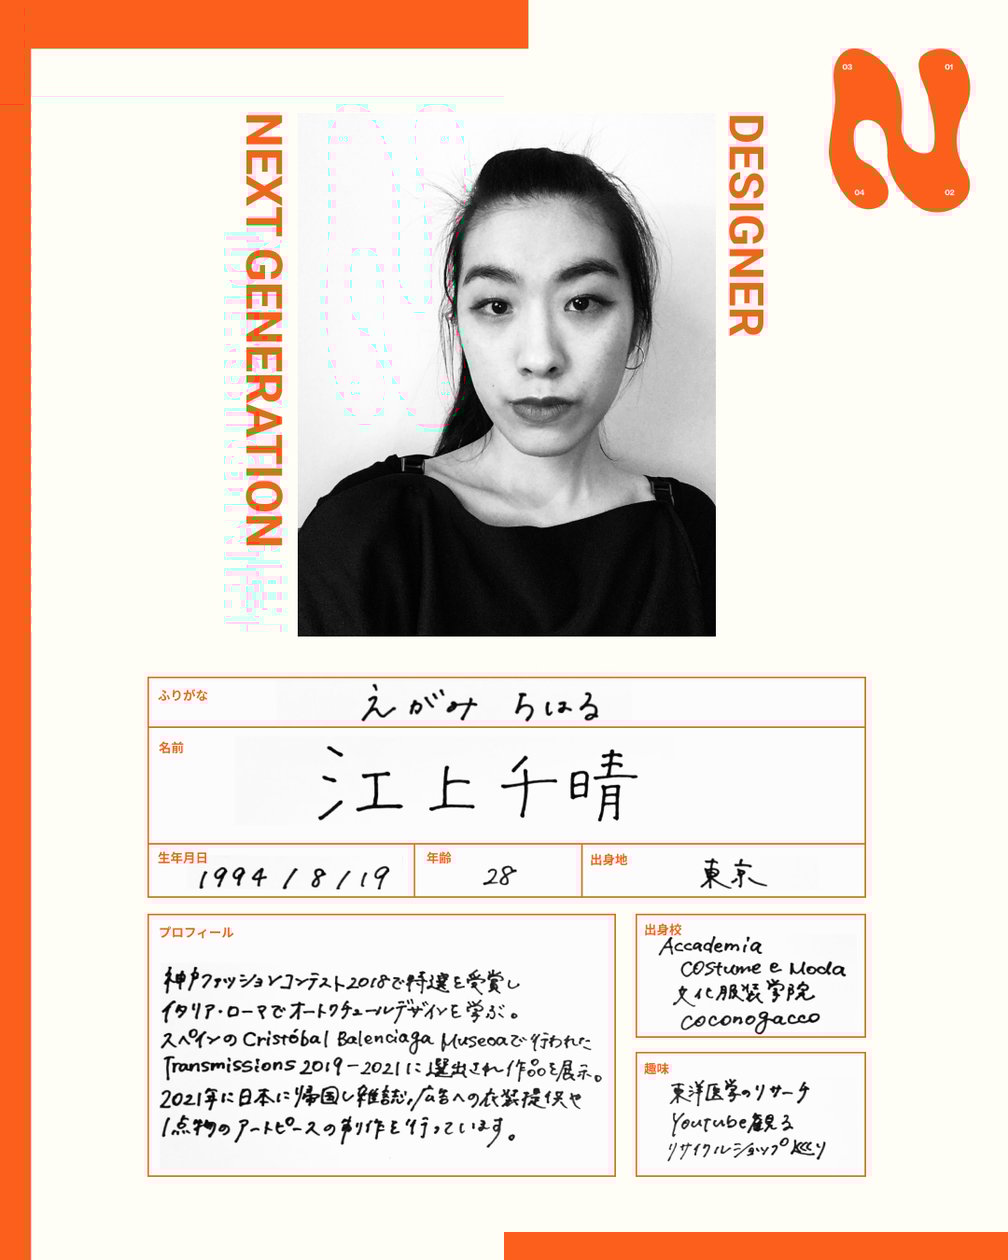 NEXT GENERATION
DESIGNER
03
01
04
02
ふりがな
えがみ ちはる
名前
江上千晴
生年月日
1994 / 8 / 19
年齢
28
出身地
東京
プロフィール
神戸ファッションコンテスト2018で特選を受賞し
イタリア・ローマでオートクチュールデザインを学ぶ。
スペインのCristóbal Balenciaga Museoaで行われた
Transmissions 2019-2021に選出され作品を展示。
2021年に日本に帰国し雑誌,広告への衣装提供や
1点物のアートピースの制作を行っています。
出身校
Accademia
Costume e Moda
文化服装学院
coconogacco
趣味
東洋医学のリサーチ
Youtube観る
リサイクルショップ巡り